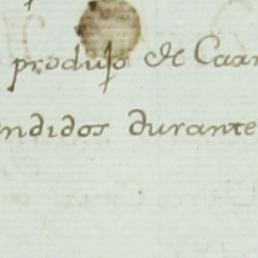 produjo de Caar
ndidos durante